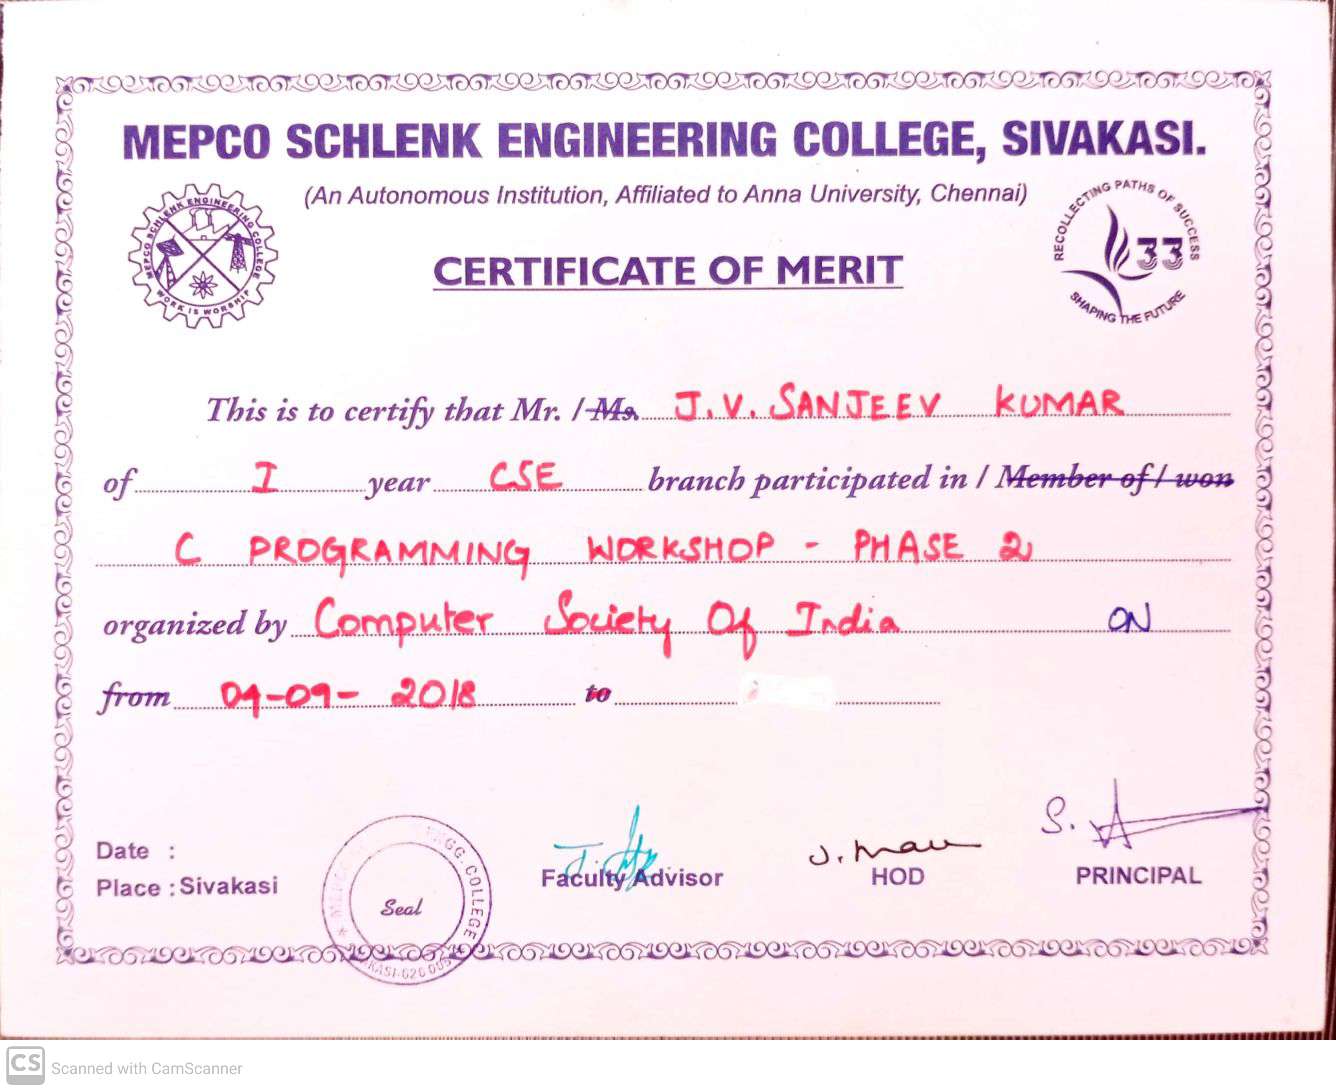 MEPCO SCHLENK ENGINEERING COLLEGE, SIVAKASI.
(An Autonomous Institution, Affiliated to Anna University, Chennai)
MEPCO SCHLENK ENGINEERING COLLEGE
WORK IS WORSHIP
RECOLLECTING PATHS OF SUCCESS
33
SHAPING THE FUTURE
CERTIFICATE OF MERIT
This is to certify that Mr. / Ms. J.V. SANJEEV KUMAR
of I year CSE branch participated in / Member of / won
C PROGRAMMING WORKSHOP - PHASE 2
organized by Computer Society Of India ON
from 09-09-2018 to
Date :
Place : Sivakasi
Seal
MEPCO ENGG. COLLEGE
J.
Faculty Advisor
HOD
S.
PRINCIPAL
CS Scanned with CamScanner